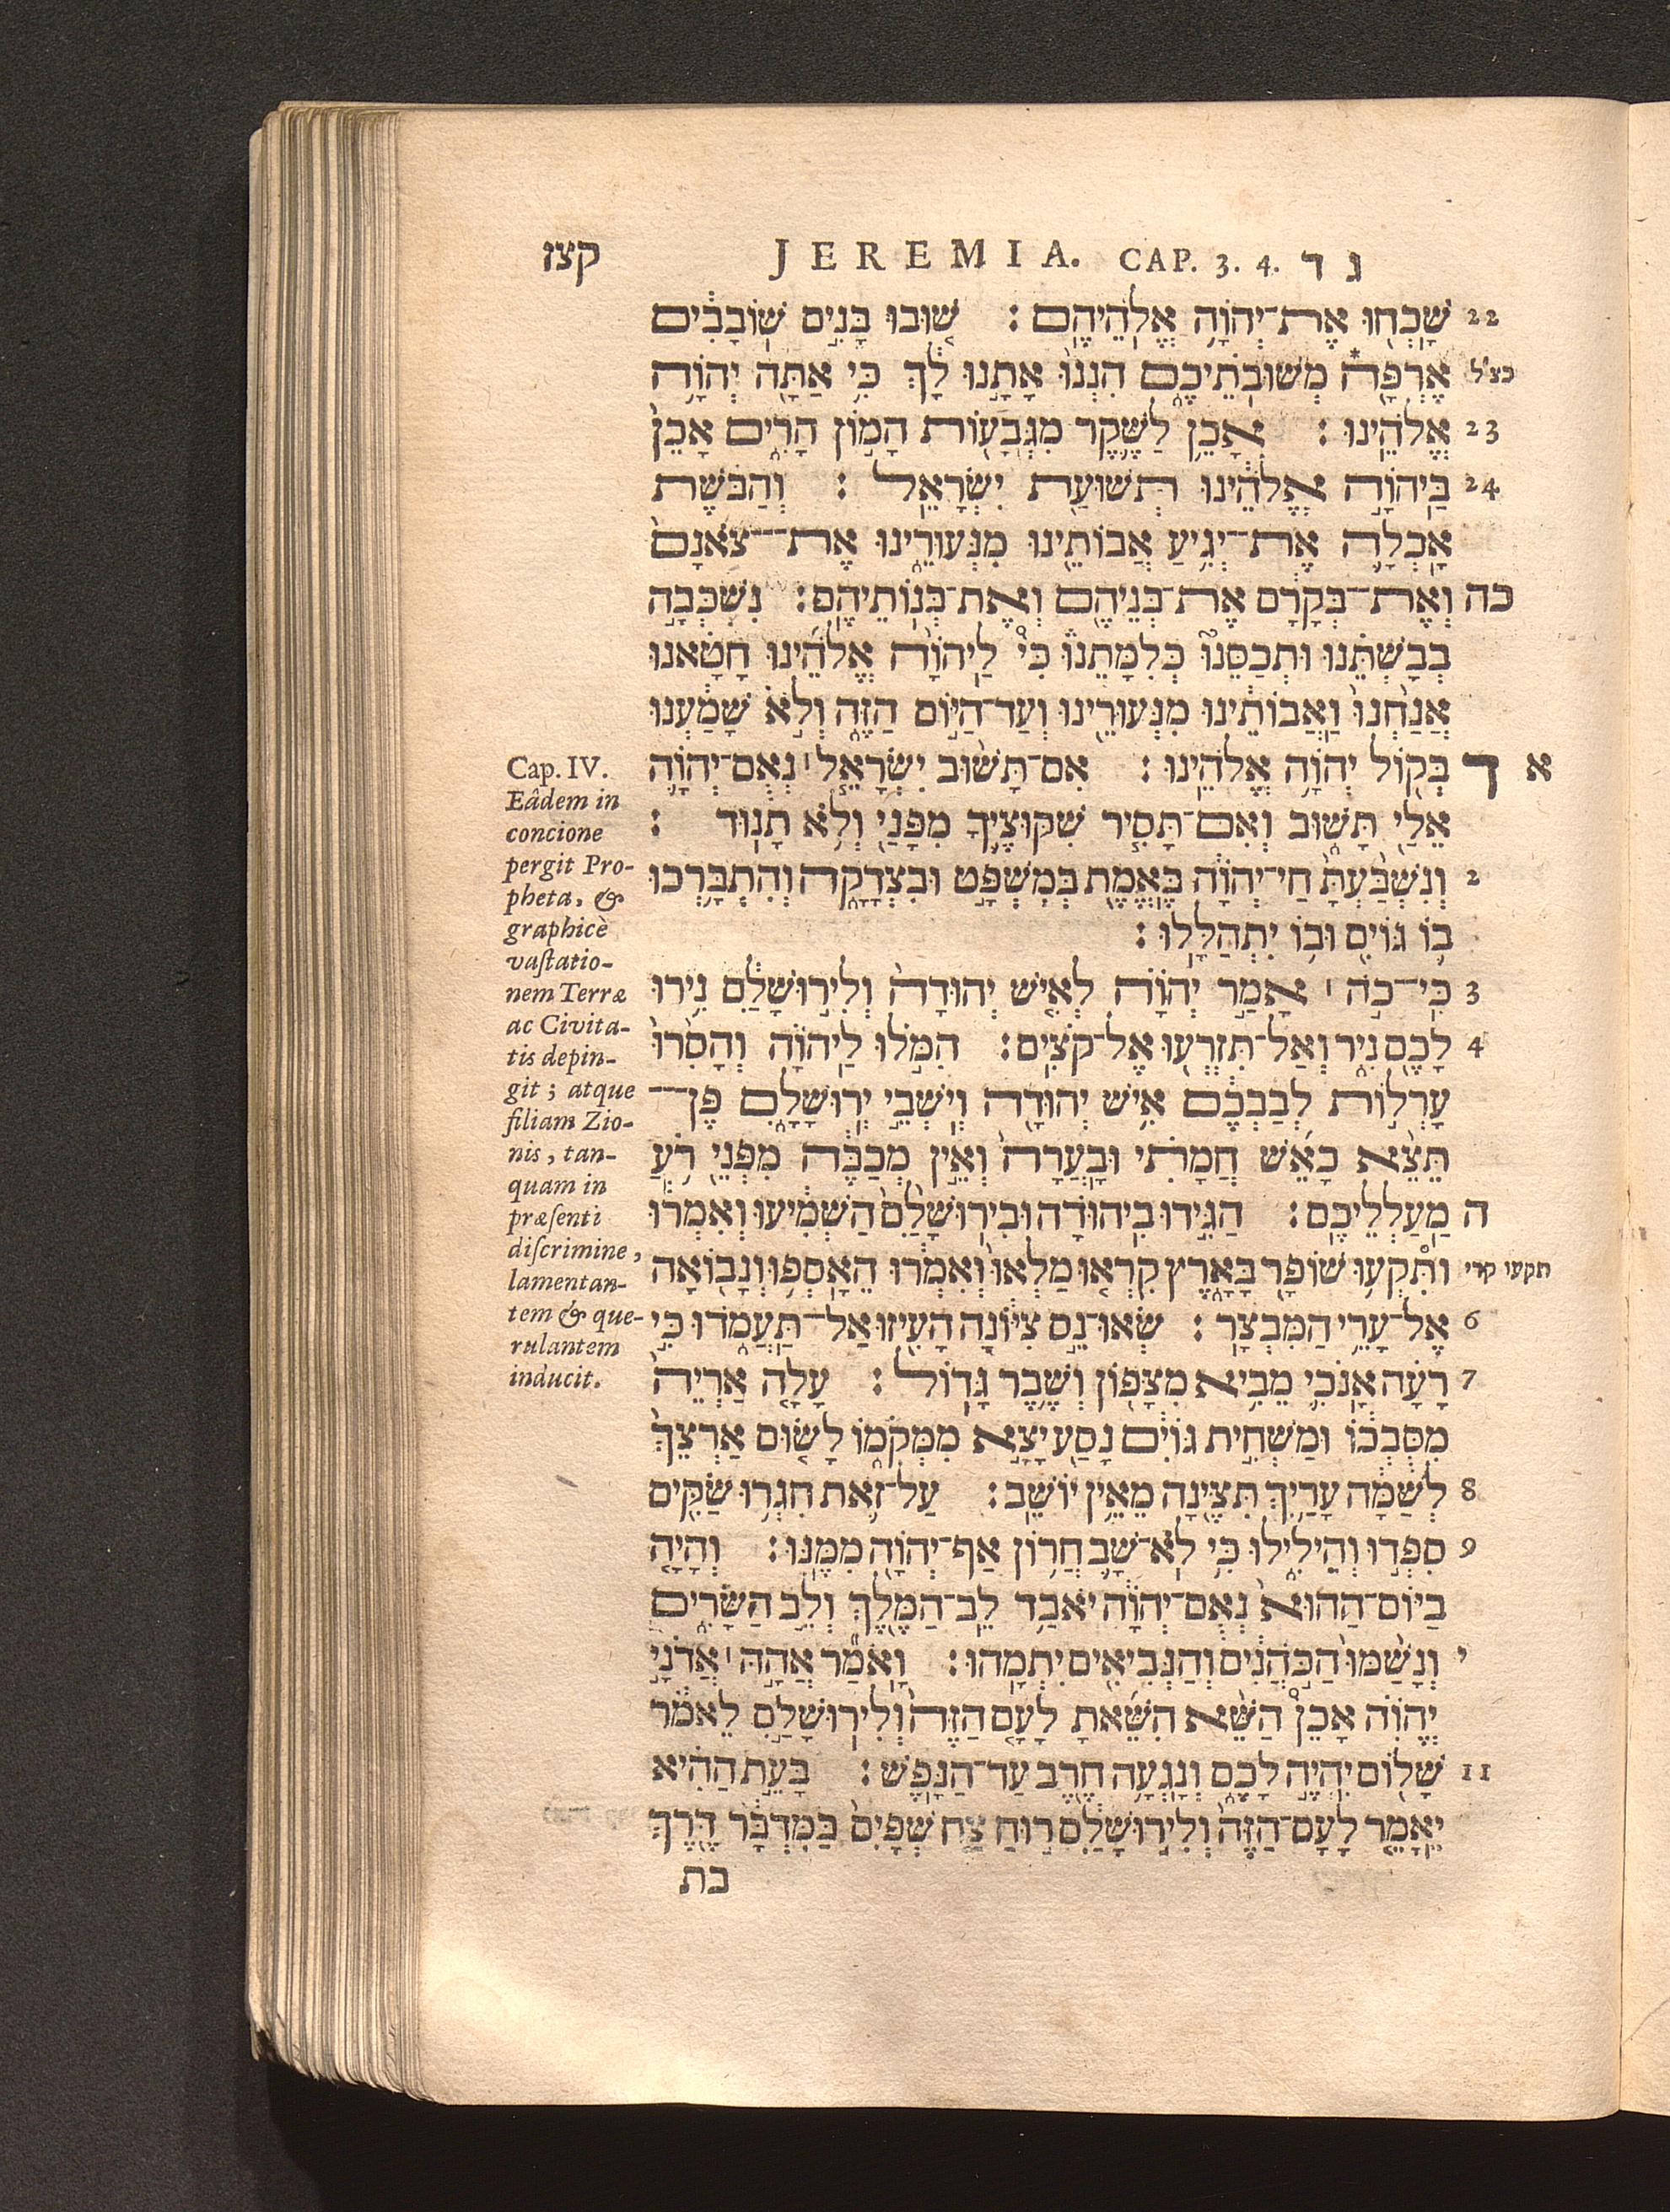 קצו JEREMIA. CAP. 3. 4. ג ד
22 שָׁכְח֖וּ אֶת־יְהוָ֥ה אֱלֹהֵיהֶֽם׃ שׁ֚וּבוּ בָּנִ֣ים שׁוֹבָבִ֔ים
כצ״ל אֶרְפָּ֖ה* מְשׁוּבֹֽתֵיכֶ֑ם הִנְנוּ֙ אָתָ֣נוּ לָ֔ךְ כִּ֥י אַתָּ֖ה יְהוָ֥ה
23 אֱלֹהֵֽינוּ׃ אָכֵ֥ן לַשֶּׁ֛קֶר מִגְּבָע֖וֹת הָמ֣וֹן הָרִ֑ים אָכֵן֙
24 בַּֽיהוָ֣ה אֱלֹהֵ֔ינוּ תְּשׁוּעַ֖ת יִשְׂרָאֵֽל׃ וְהַבֹּ֗שֶׁת
אָֽכְלָ֛ה אֶת־יְגִ֥יעַ אֲבוֹתֵ֖ינוּ מִנְּעוּרֵ֑ינוּ אֶת־צֹאנָם֙
כה וְאֶת־בְּקָרָ֔ם אֶת־בְּנֵיהֶ֖ם וְאֶת־בְּנֽוֹתֵיהֶֽם׃ נִשְׁכְּבָ֣ה
בְּבָשְׁתֵּ֗נוּ וּתְכַסֵּנוּ֮ כְּלִמָּתֵנוּ֒ כִּי֩ לַֽיהוָ֨ה אֱלֹהֵ֜ינוּ חָטָ֗אנוּ
אֲנַ֙חְנוּ֙ וַאֲבוֹתֵ֔ינוּ מִנְּעוּרֵ֖ינוּ וְעַד־הַיּ֣וֹם הַזֶּ֑ה וְלֹ֣א שָׁמַ֔עְנוּ
א ד בְּק֖וֹל יְהוָ֥ה אֱלֹהֵֽינוּ׃ אִם־תָּשׁ֨וּב יִשְׂרָאֵ֧ל׀ נְאֻם־יְהוָ֛ה
אֵלַ֖י תָּשׁ֑וּב וְאִם־תָּסִ֧יר שִׁקּוּצֶ֛יךָ מִפָּנַ֖י וְלֹ֥א תָנֽוּד׃
2 וְנִשְׁבַּ֙עְתָּ֙ חַי־יְהוָ֔ה בֶּאֱמֶ֖ת בְּמִשְׁפָּ֣ט וּבִצְדָקָ֑ה וְהִתְבָּ֥רְכוּ
ב֛וֹ גּוֹיִ֖ם וּב֥וֹ יִתְהַלָּֽלוּ׃
3 כִּי־כֹ֣ה׀ אָמַ֣ר יְהוָ֗ה לְאִ֤ישׁ יְהוּדָה֙ וְלִיר֣וּשָׁלִַ֔ם נִ֥ירוּ
4 לָכֶ֖ם נִ֑יר וְאַֽל־תִּזְרְע֖וּ אֶל־קֹצִֽים׃ הִמֹּ֣לוּ לַֽיהוָ֗ה וְהָסִ֙רוּ֙
עָרְל֣וֹת לְבַבְכֶ֔ם אִ֥ישׁ יְהוּדָ֖ה וְיֹשְׁבֵ֣י יְרוּשָׁלִָ֑ם פֶּן־
תֵּצֵ֨א כָאֵ֜שׁ חֲמָתִ֗י וּבָעֲרָה֙ וְאֵ֣ין מְכַבֶּ֔ה מִפְּנֵ֖י רֹ֥עַ
ה מַעַלְלֵיכֶֽם׃ הַגִּ֣ידוּ בִֽיהוּדָ֗ה וּבִירוּשָׁלִַ֙ם֙ הַשְׁמִ֔יעוּ וְאִמְר֕וּ
תקעו קרי וּתִּקְע֥וּ שׁוֹפָ֖ר בָּאָ֑רֶץ קִרְא֤וּ מַלְאוּ֙ וְאִמְר֔וּ הֵאָסְפ֥וּ וְנָב֖וֹאָה
6 אֶל־עָרֵ֥י הַמִּבְצָֽר׃ שְׂאוּ־נֵ֣ס צִיּ֔וֹנָה הָעִ֖יזוּ אַֽל־תַּעֲמֹ֑דוּ כִּ֣י
7 רָעָ֗ה אָנֹכִ֛י מֵבִ֥יא מִצָּפ֖וֹן וְשֶׁ֥בֶר גָּדֽוֹל׃ עָלָ֤ה אַרְיֵה֙
מִֽסֻּבְּכ֔וֹ וּמַשְׁחִ֣ית גּוֹיִ֔ם נָסַ֖ע יָצָ֣א מִמְּקֹמ֑וֹ לָשׂ֤וּם אַרְצֵךְ֙
8 לְשַׁמָּ֔ה עָרַ֥יִךְ תִּצֶּ֖ינָה מֵאֵ֥ין יוֹשֵֽׁב׃ עַל־זֹ֛את חִגְר֥וּ שַׂקִּ֖ים
9 סִפְד֣וּ וְהֵילִ֑ילוּ כִּ֥י לֹא־שָׁ֛ב חֲר֥וֹן אַף־יְהוָ֖ה מִמֶּֽנּוּ׃ וְהָיָ֤ה
בַיּוֹם־הַהוּא֙ נְאֻם־יְהוָ֔ה יֹאבַ֥ד לֵב־הַמֶּ֖לֶךְ וְלֵ֣ב הַשָּׂרִ֑ים
י וְנָשַׁ֙מּוּ֙ הַכֹּ֣הֲנִ֔ים וְהַנְּבִיאִ֖ים יִתְמָֽהוּ׃ וָאֹמַ֞ר אֲהָ֣הּ׀ אֲדֹנָ֣י
יְהוִ֗ה אָכֵן֩ הַשֵּׁ֨א הִשֵּׁ֜אתָ לָעָ֤ם הַזֶּה֙ וְלִירוּשָׁלִַ֣ם לֵאמֹ֔ר
11 שָׁל֖וֹם יִהְיֶ֣ה לָכֶ֑ם וְנָגְעָ֥ה חֶ֖רֶב עַד־הַנָּֽפֶשׁ׃ בָּעֵ֣ת הַהִ֗יא
יֵאָמֵ֤ר לָֽעָם־הַזֶּה֙ וְלִיר֣וּשָׁלִַ֔ם ר֣וּחַ צַ֤ח שְׁפָיִם֙ בַּמִּדְבָּ֔ר דֶּ֖רֶךְ
בת
Cap. IV.
Eâdem in
concione
pergit Pro-
pheta, &
graphicè
vaſtatio-
nem Terræ
ac Civita-
tis depin-
git; atque
filiam Zio-
nis, tan-
quam in
præſenti
diſcrimine,
lamentan-
tem & que-
rulantem
inducit.